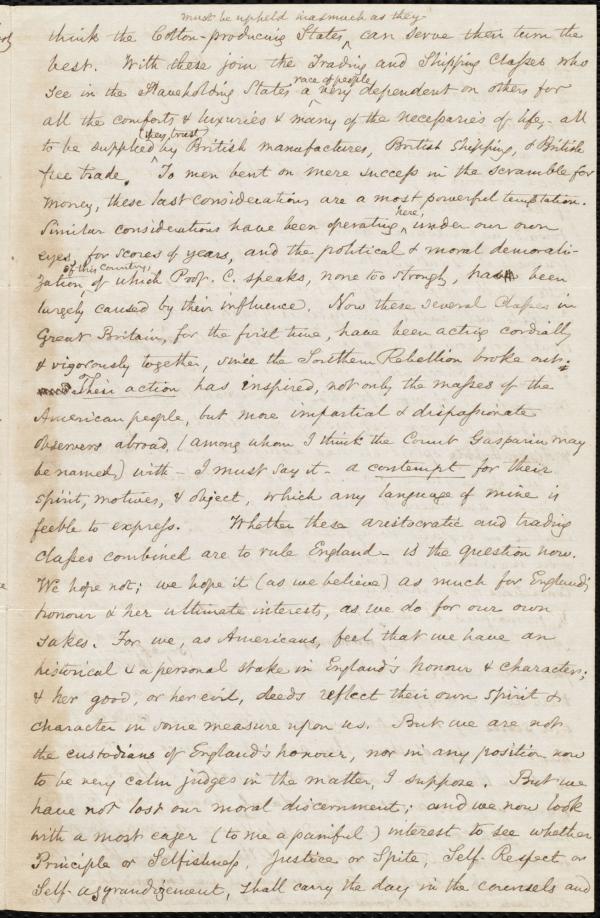 must be upheld inasmuch as they
think the Cotton-producing States, can serve their turn the
best. With these join the Trading and Shipping Classes who
race of people
see in the Slaveholding States a very dependent on others for
all the comforts & luxuries & many of the necessaries of life,- all
(they trust)
to be supplied by British manufactures, British Shipping, & British
free trade. To men bent on mere success in the scramble for
money, these last considerations are a most powerful temptation.
here,
Similar considerations have been operating under our own
eyes, for scores of years, and the political & moral demorali-
of this country,
zation, of which Prof. C. speaks, none too strongly, has been
largely caused by their influence. Now these several Classes in
Great Britain, for the first time, have been acting cordially
& vigorously together, since the Southern Rebellion broke out.
Their action has inspired, not only the masses of the
American people, but more impartial & dispassionate
observers abroad, (among whom I think the Count Gasparin may
be named,) with - I must say it - a contempt for their
spirit, motives, & object, which any language of mine is
feeble to express. Whether these aristocratic and trading
classes combined are to rule England - is the question now.
We hope not; we hope it (as we believe) as much for England's
honour & her ultimate interests, as we do for our own
sakes. For we, as Americans, feel that we have an
historical & a personal stake in England's honour & character;
& her good, or her evil, deeds reflect their own spirit &
character in some measure upon us. But we are not
the custodians of England's honour, nor in any position now
to be very calm judges in the matter, I suppose. But we
have not lost our moral discernment; and we now look
with a most eager (to me a painful) interest to see whether
Principle or Selfishness, Justice or Spite, Self-Respect or
Self-aggrandizement, shall carry the day in the counsels and